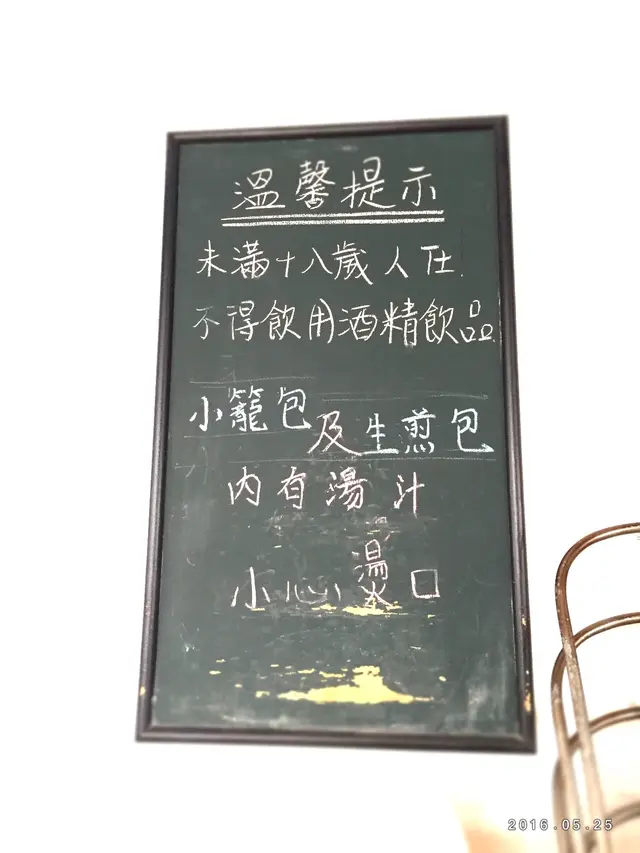 溫馨提示
未滿十八歲人仕.
不得飲用酒精飲品.
小籠包及生煎包
內有湯汁
小心燙口
2016.05.25